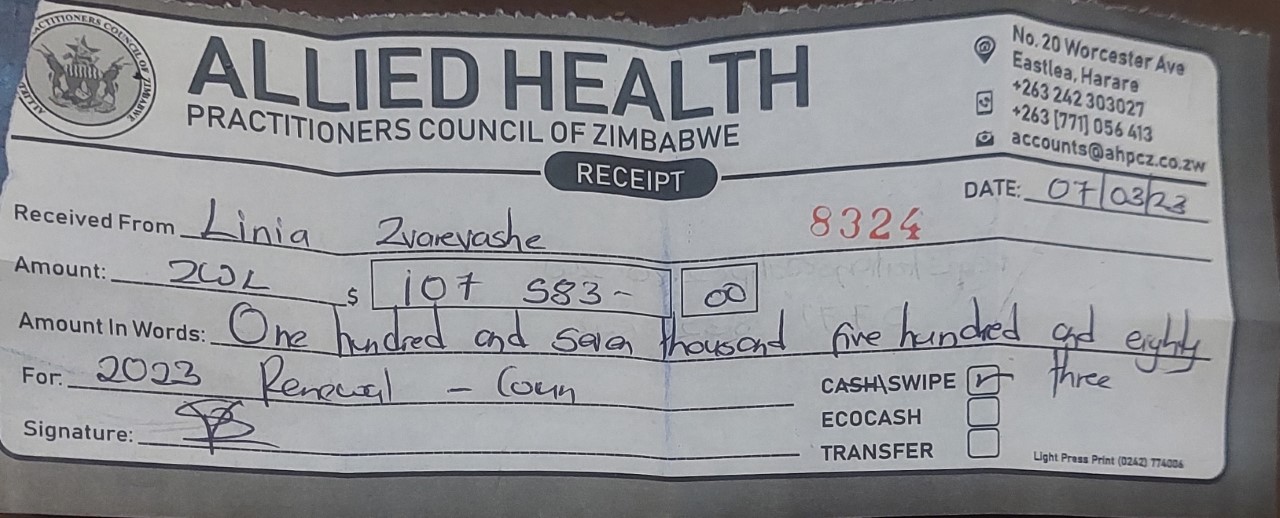 ALLIED HEALTH
PRACTITIONERS COUNCIL OF ZIMBABWE
No. 20 Worcester Ave
Eastlea, Harare
+263 242 303027
+263 [771] 056 413
accounts@ahpcz.co.zw
RECEIPT
DATE: 07/03/23
Received From Linia Zvarevashe
8324
Amount: ZWL $ 107 583 - 00
Amount In Words: One hundred and seven thousand five hundred and eighty
three
For: 2023 Renewal - Coun
CASH\SWIPE
Signature:
ECOCASH
TRANSFER
Light Press Print (0242) 774006